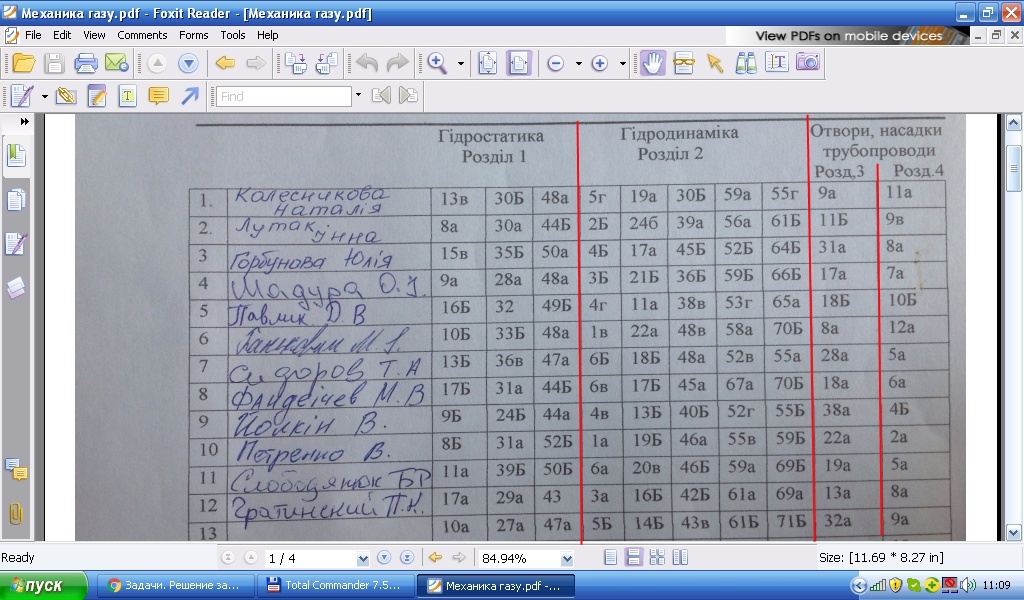 Механика газу.pdf - Foxit Reader - [Механика газу.pdf]
File Edit View Comments Forms Tools Help
View PDFs on mobile devices
Find
Гідростатика Гідродинаміка Отвори, насадки
Розділ 1 Розділ 2 трубопроводи
Розд,3 Розд.4
1. Колесникова Наталія 13в 30Б 48а 5г 19а 30Б 59а 55г 9а 11а
2. Лутак Інна 8а 30а 44Б 2Б 24б 39а 56а 61Б 11Б 9в
3 Горбунова Юлія 15в 35Б 50а 4Б 17а 45Б 52Б 64Б 31а 8а
4 Мадура О. 9а 28а 48а 3Б 21Б 36Б 59Б 66Б 17а 7а
5 Павлик Д.В 16Б 32 49Б 4г 11а 38в 53г 65а 18Б 10Б
6 М. 10Б 33Б 48а 1в 22а 48в 58а 70Б 8а 12а
7 Сидоров Т.А 13Б 36в 47а 6Б 18Б 48а 52в 55а 28а 5а
8 М.В 17Б 31а 44Б 6в 17Б 45а 67а 70Б 18а 6а
9 Йолкін В. 9Б 24Б 44а 4в 13Б 40Б 52г 55Б 38а 4Б
10 Петренко В. 8Б 31а 52Б 1а 19Б 46а 55в 59Б 22а 2а
11 Слободянюк БР 11а 39Б 50Б 6а 20в 46Б 59а 69Б 19а 5а
12 17а 29а 43 3а 16Б 42Б 61а 69а 13а 8а
13 10а 27а 47а 5Б 14Б 43в 61Б 71Б 32а 9а
Ready 1 / 4 84.94% Size: [11.69 * 8.27 in]
пуск Задачи. Решение за... Total Commander 7.5... Механика газу.pdf -... 11:09